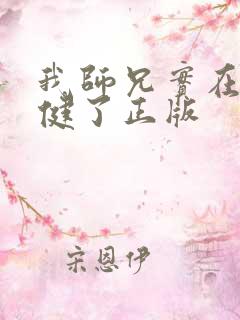 我師兄實在
健了正版
宋恩伊